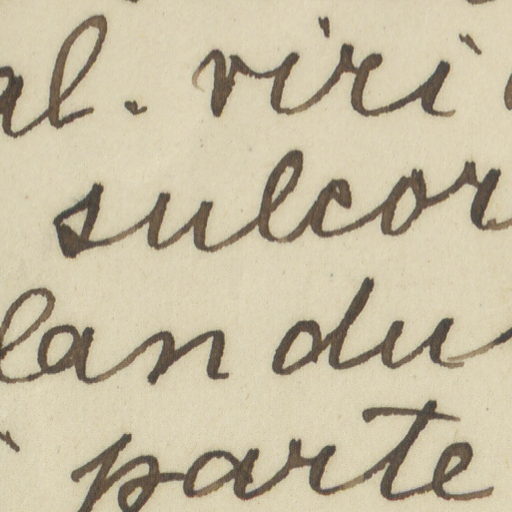 al. viri
sulcor
landu
parte